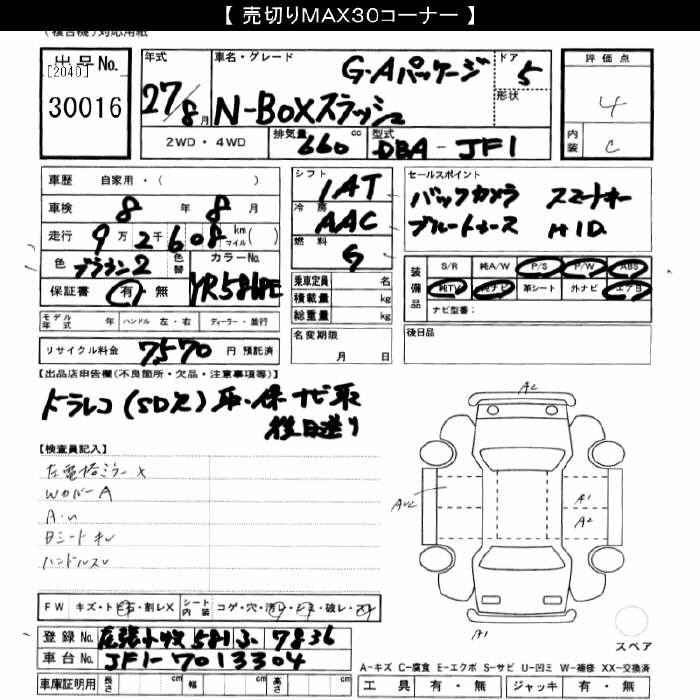 【 売切りMAX30コーナー 】
(複合機)対応用紙
出品No.
[2040]
30016
年式
27/8月
車名・グレード
G・Aパッケージ
N-BOXスラッシュ
ドア
5
形状
評価点
4
内装
C
2WD ・ 4WD
排気量 660 cc
型式 DBA - JF1
車歴 自家用・( )
車検 8 年 8 月
走行 9万2千608 km マイル( )
色 ブラウン2
色替
カラーNo. YR586PE
保証書 有・無
シフト
IAT
冷房
AAC
燃料
G
セールスポイント
バックカメラ スマートキー
ブルートゥース HID.
乗車定員 名
積載量 kg
総重量 kg
装備品
S/R 純A/W P/S P/W ABS
純TV 純ナビ 革シート 外ナビ エアB
ナビ型番:
モデル年式 年 ハンドル 左・右 ディーラー・並行
名変期限
月 日
後日品
リサイクル料金 7,570 円 預託済
【出品店申告欄(不良箇所・欠品・注意事項等)】
ドラレコ(SD欠) 取・保 ナビ取
後日送り
【検査員記入】
左電格ミラーX
WカバーA
A・U
Bシートキレ
ハンドルスレ
FW キズ・トビ石・割レX
シート内装 コゲ・穴・汚レ・シミ・破レ・スレ
登録No. 尾張小牧 581 ふ 7836
車台No. JF1-7013304
車庫証明用 長さ cm 幅 cm 高さ cm
A2
AU2
A1
A2
A1
スペア
A-キズ C-腐食 E-エクボ S-サビ U-凹ミ W-補修 XX-交換済
工具 有・無 ジャッキ 有・無